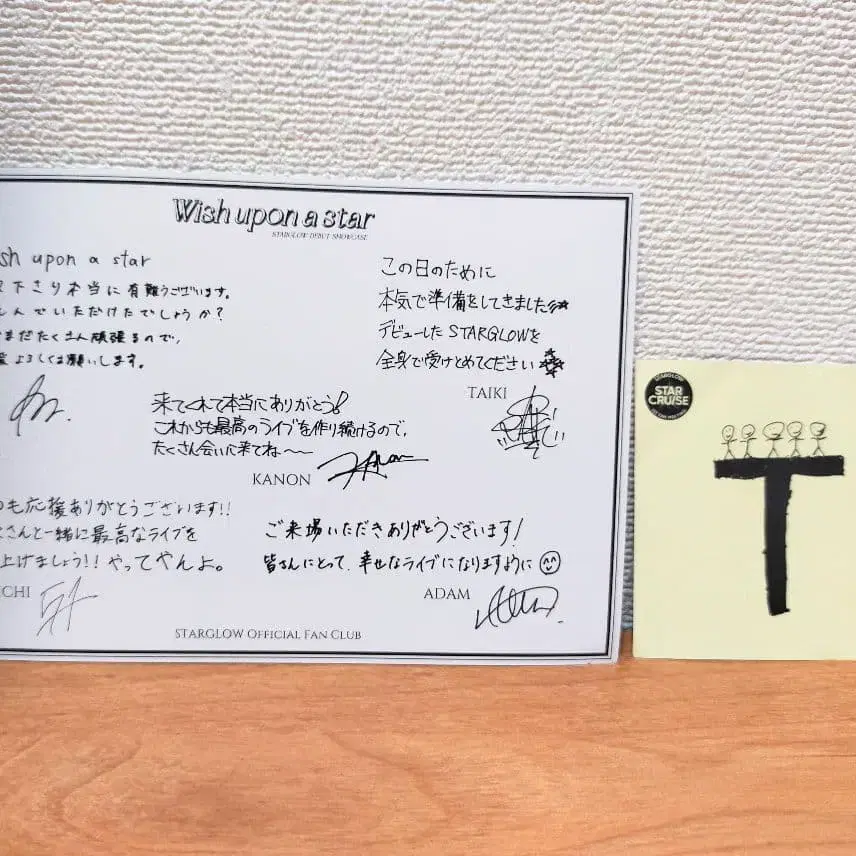 Wish upon a star
STARGLOW DEBUT SHOWCASE
sh upon a star
下さり本当に有難うございます。
しんでいただけたでしょうか？
まだたくさん頑張るので、
よろしくお願いします。
この日のために
本気で準備をしてきました
デビューしたSTARGLOWを
全身で受けとめてください
TAIKI
来てくれて本当にありがとう!
これからも最高のライブを作り続けるので、
たくさん会いに来てね〜
KANON
も応援ありがとうございます!!
さんと一緒に最高なライブを
上げましょう!!やってやんよ。
ICHI
ご来場いただきありがとうございます!
皆さんにとって、幸せなライブになりますように
ADAM
STARGLOW OFFICIAL FAN CLUB
STARGLOW
STAR
CRUISE
T